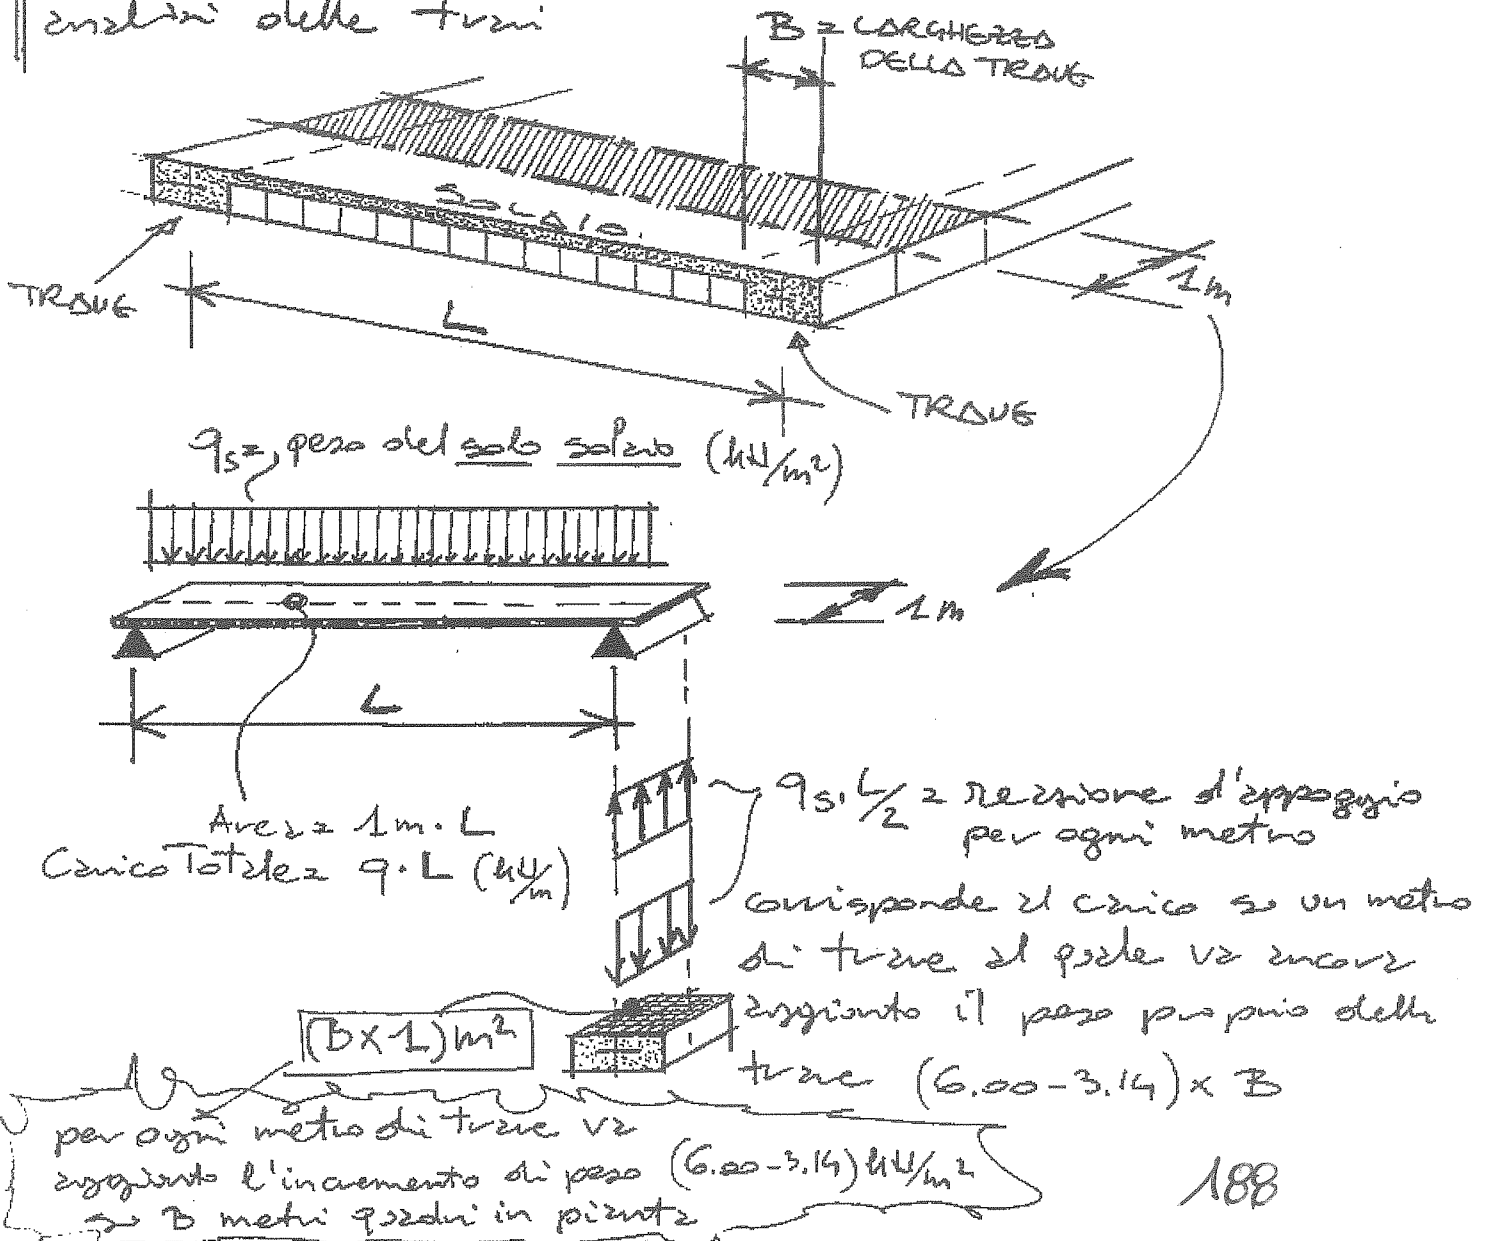 analisi delle travi
B = LARGHEZZA
DELLA TRAVE
SOLAIO
TRAVE
L
1 m
TRAVE
qs = peso del solo solaio (kN/m²)
1 m
L
Area = 1m · L
Carico Totale = q · L (kN/m)
qs · L/2 = reazione d'appoggio
per ogni metro
corrisponde al carico su un metro
di trave al quale va ancora
aggiunto il peso proprio della
trave (6.00-3.14) x B
(B x 1) m²
per ogni metro di trave va
aggiunto l'incremento di peso (6.00-3.14) kN/m²
su B metri quadri in pianta
188